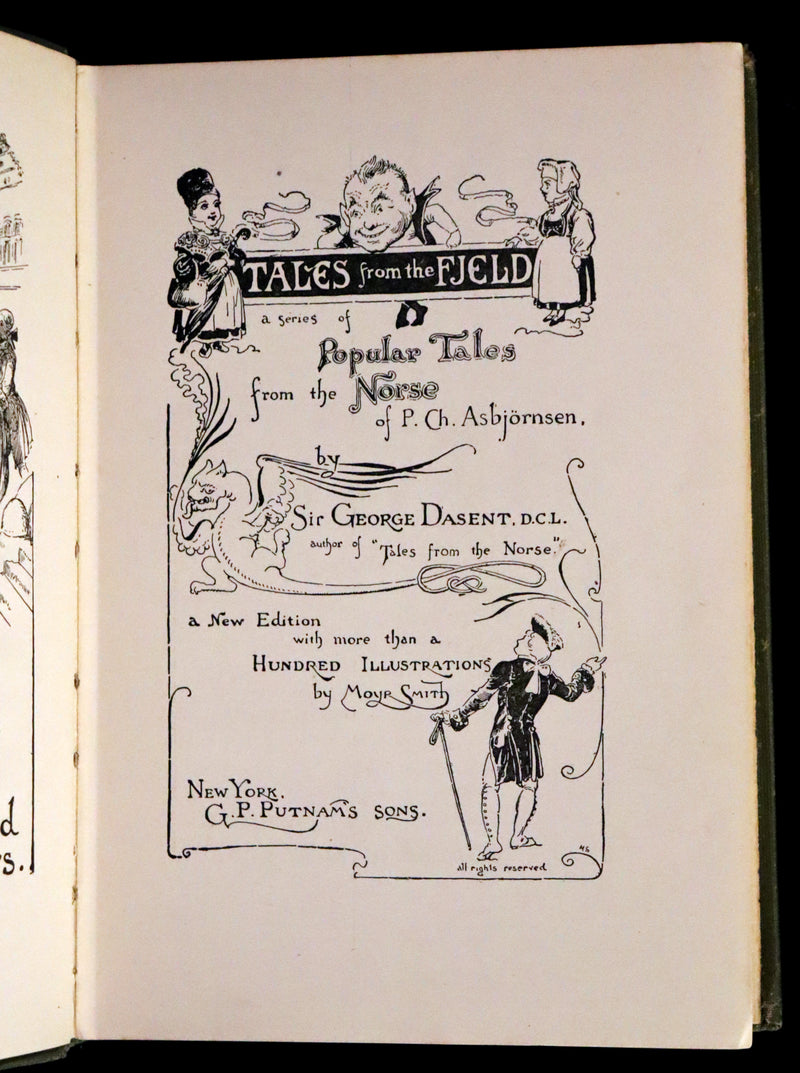 TALES from the FJELD
a series of
Popular Tales
from the Norse
of P. Ch. Asbjörnsen,
by
Sir GEORGE DASENT, D.C.L.
author of "Tales from the Norse."
a New Edition
with more than a
HUNDRED ILLUSTRATIONS
by MOYR SMITH
NEW YORK.
G. P. PUTNAM'S SONS.
all rights reserved
d
s.